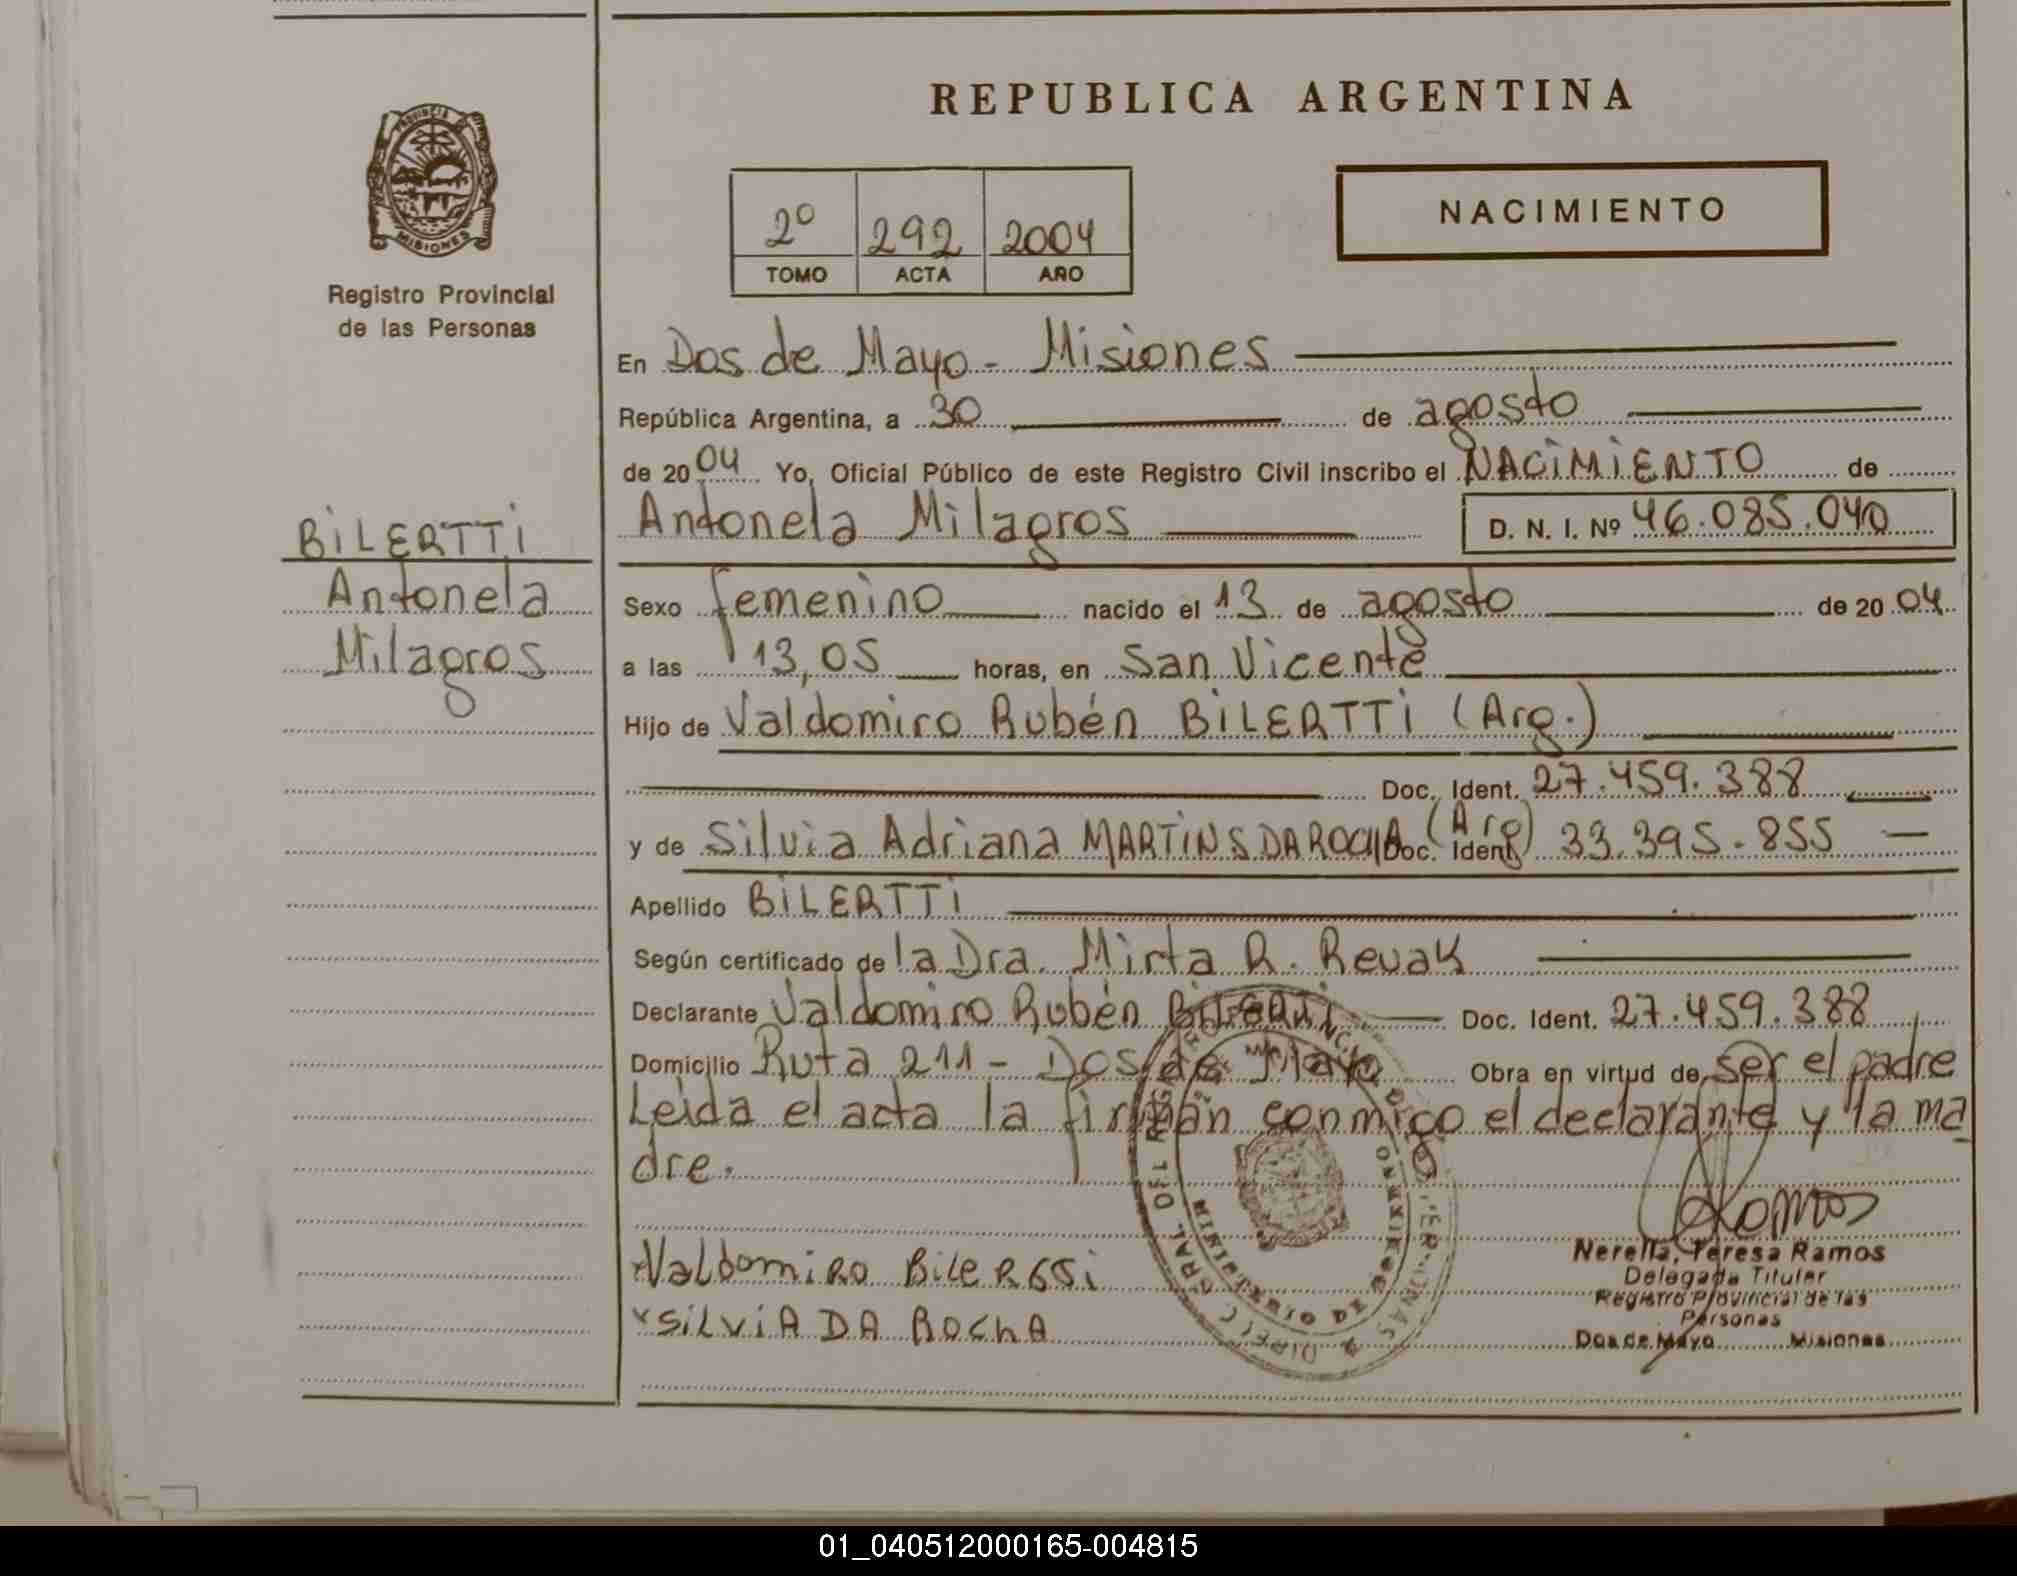 REPUBLICA ARGENTINA
PROVINCIA DE
MISIONES
Registro Provincial
de las Personas
2º 292 2004
TOMO ACTA AÑO
NACIMIENTO
En Dos de Mayo - Misiones
República Argentina, a 30 de agosto
de 2004 Yo, Oficial Público de este Registro Civil inscribo el NACIMIENTO de
Antonela Milagros D. N. I. Nº 46.085.040
BILERTTI
Antonela
Milagros
Sexo femenino nacido el 13 de agosto de 2004
a las 13,05 horas, en San Vicente
Hijo de Valdomiro Rubén BILERTTI (Arg.)
Doc. Ident. 27.459.388
y de Silvia Adriana MARTINS DA ROCHA (Arg) Doc. Ident. 33.395.855
Apellido BILERTTI
Según certificado de la Dra. Mirta R. Revak
Declarante Valdomiro Rubén Doc. Ident. 27.459.388
Domicilio Ruta 211 - Dos de Mayo Obra en virtud de ser el padre
Leida el acta la firman conmigo el declarante y la ma
dre.
Ramos
Nerella, Teresa Ramos
Delegada Titular
Registro Provincial de las
Personas
Dos de Mayo Misiones
Valdomiro
x SiLViA DA ROCHA
DIRECC. GRAL. DEL REGISTRO PROVINCIAL DE PERSONAS
MINISTERIO DE GOBIERNO
01_040512000165-004815